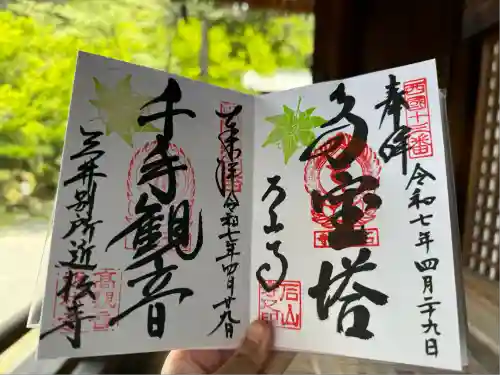 奉拝
西国十三番
令和七年四月二十九日
多宝塔
石山寺
石山
奉拝
令和七年四月廿九日
千手観音
三井別所近松寺
高観音